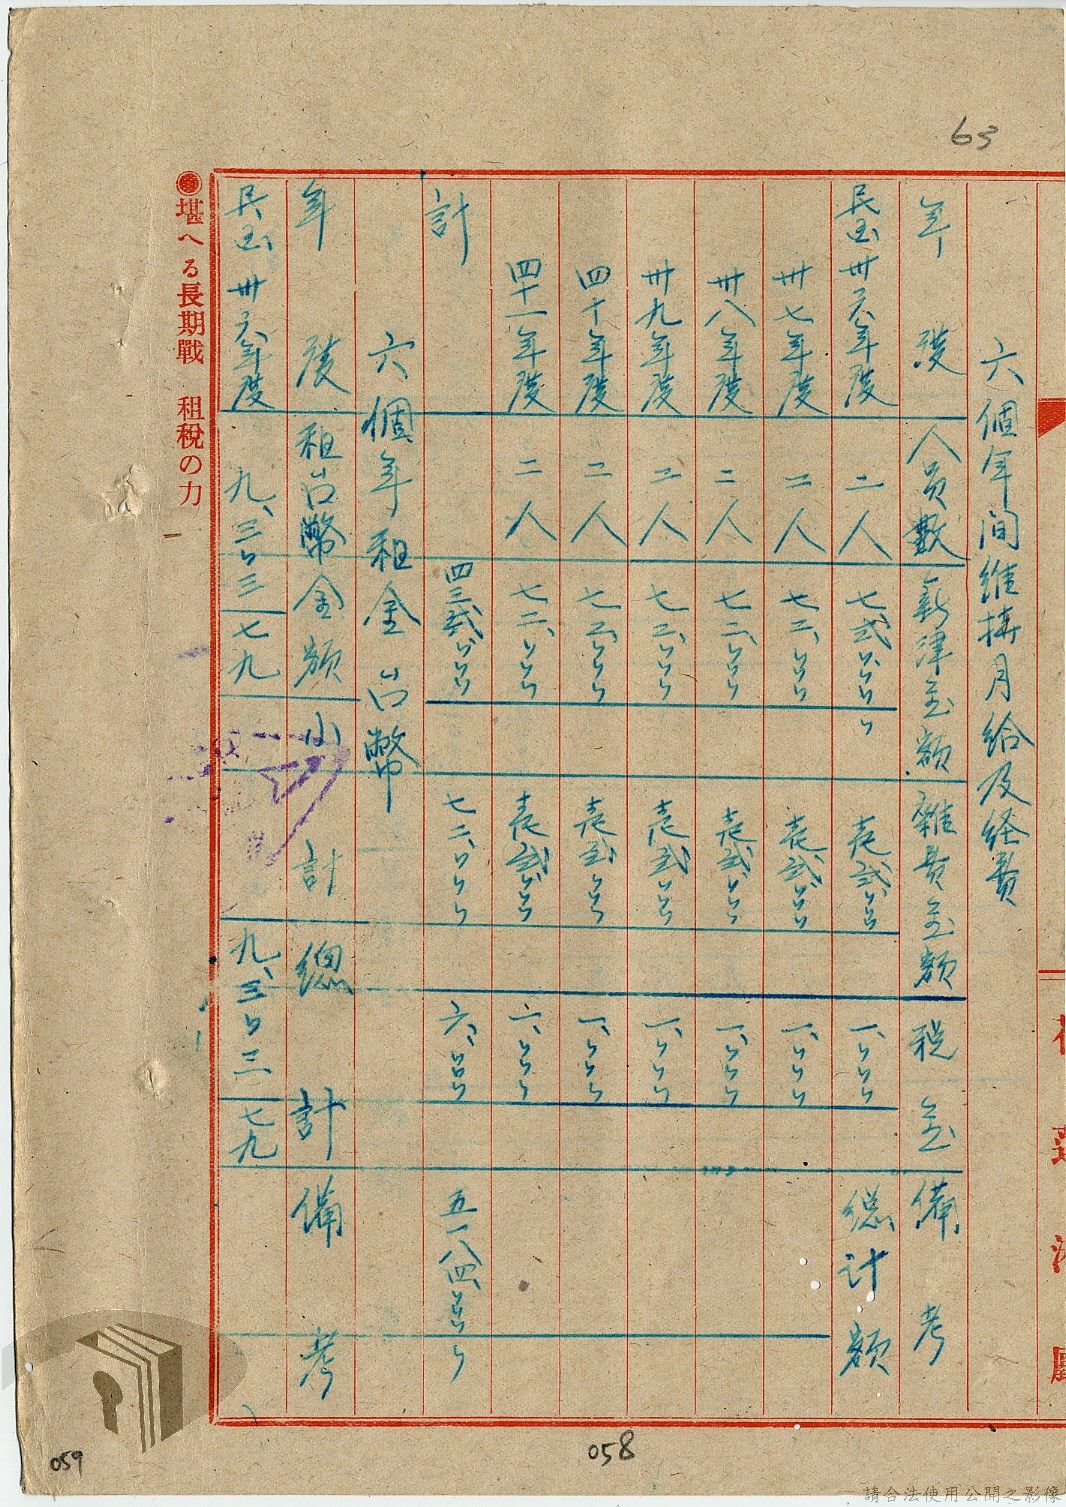 63
六個年间維持月給及経費
年度 人員數 薪津金額 雜費金額 税金 備考
民国卅六年度 二人 七弍、〇〇〇 壱弍〇〇〇 一、〇〇〇 總計額
卅七年度 二人 七二、〇〇〇 壱弍〇〇〇 一、〇〇〇
卅八年度 二人 七二、〇〇〇 壱弍〇〇〇 一、〇〇〇
卅九年度 二人 七二、〇〇〇 壱弍〇〇〇 一、〇〇〇
四十年度 二人 七二〇〇〇 壱弍〇〇〇 一、〇〇〇
四十一年度 二人 七二、〇〇〇 壱弍〇〇〇 一、〇〇〇
計 四三弍、〇〇〇 七二、〇〇〇 六、〇〇〇 五一八四〇〇〇
六個年租金台幣
年度 租台幣金額 小計 總計 備考
民国卅六年度 九、三〇三 七九 九、三〇三 七九
堪へる長期戰 租税の力
058
059
請合法使用公開之影像